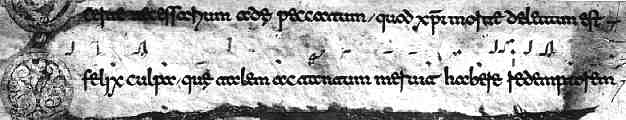 certe necessarium ade peccatum, quod xpi morte deletum est
felix culpa, que talem ac tantum meruit habere redemptorem